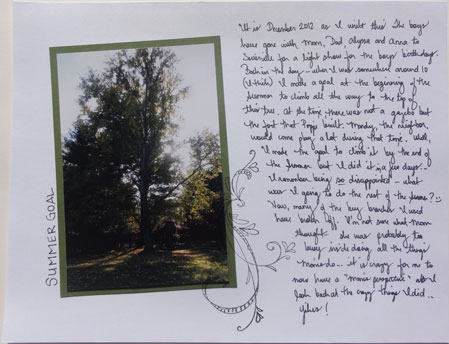 SUMMER GOAL
"It is December 2012 as I write this. The boys
have gone with Mom, Dad, Alyssa and Anna to
for a light show for the boys' birthday.
Back in the day - when I was somewhere around 10
(I think) I made a goal at the beginning of the
summer to climb all the way to the tip of
this tree. At the time there was not a gazebo but
the fort that Poppi built. Mandy, the neighbor,
would come play a lot during that time. Well,
I made the goal to climb it by the end of
the summer but I did it in a few days...
I remember being so disappointed - what
was I going to do the rest of the summer?
Now, many of the key branches I used
have broken off. I'm not sure what mom
thought. She was probably too
busy inside doing all the things
moms do... it is crazy for me to
now have a "mom's perspective" as I
look back at the crazy things I did...
Yikes!